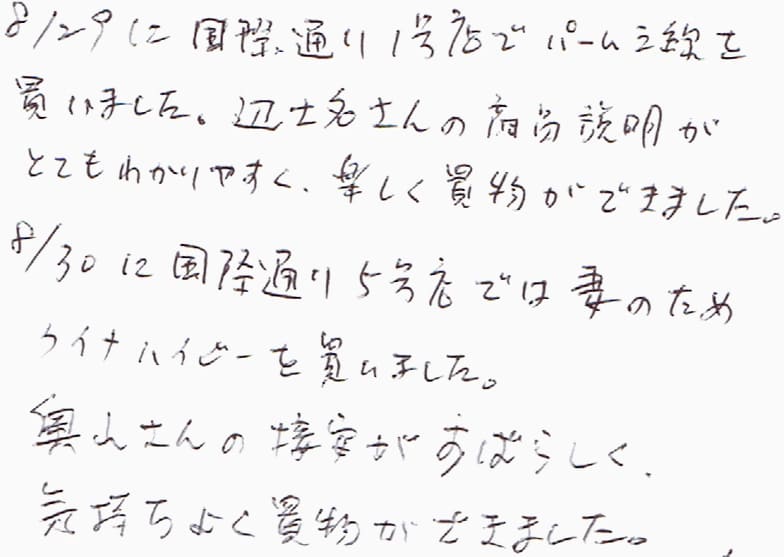 8/29に国際通り1号店でパーム立線を
買いました。辺士名さんの商品説明が
とてもわかりやすく、楽しく買物ができました。
8/30に国際通り5号店では妻のため
クイナハイビーを買いました。
奥山さんの接客がすばらしく、
気持ちよく買物ができました。